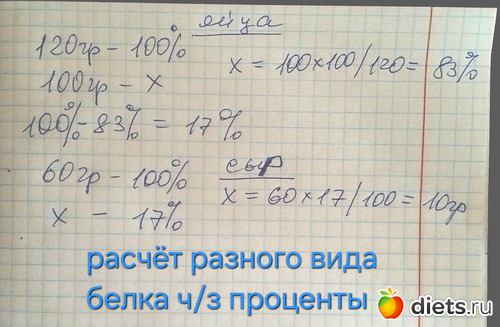 яйца
120гр - 100%
100гр - х
х = 100×100/120 = 83%
100% - 83% = 17%
сыр
60гр - 100%
х - 17%
х = 60×17/100 = 10гр
расчёт разного вида
белка ч/з проценты
diets.ru